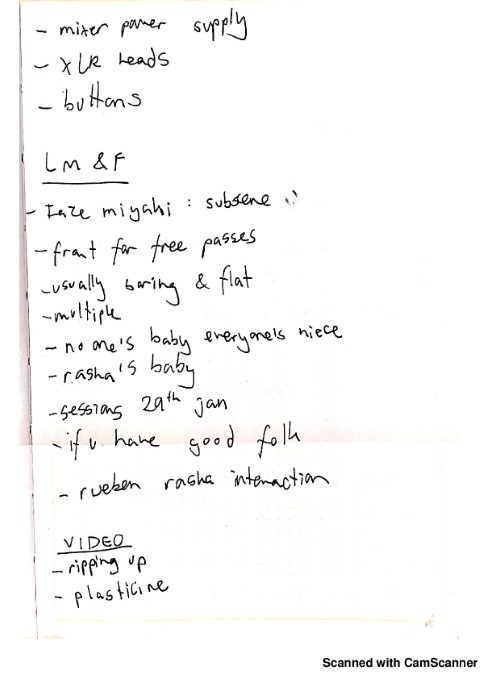 - mixer power supply
- XLR leads
- buttons
LM & F
- miyahi : subscene
- front for free passes
- usually boring & flat
- multiple
- no one's baby everyone's niece
- rasha's baby
- sessions 29th jan
- if u have good folk
- rueben rasha interaction
VIDEO
- ripping up
- plasticine
Scanned with CamScanner